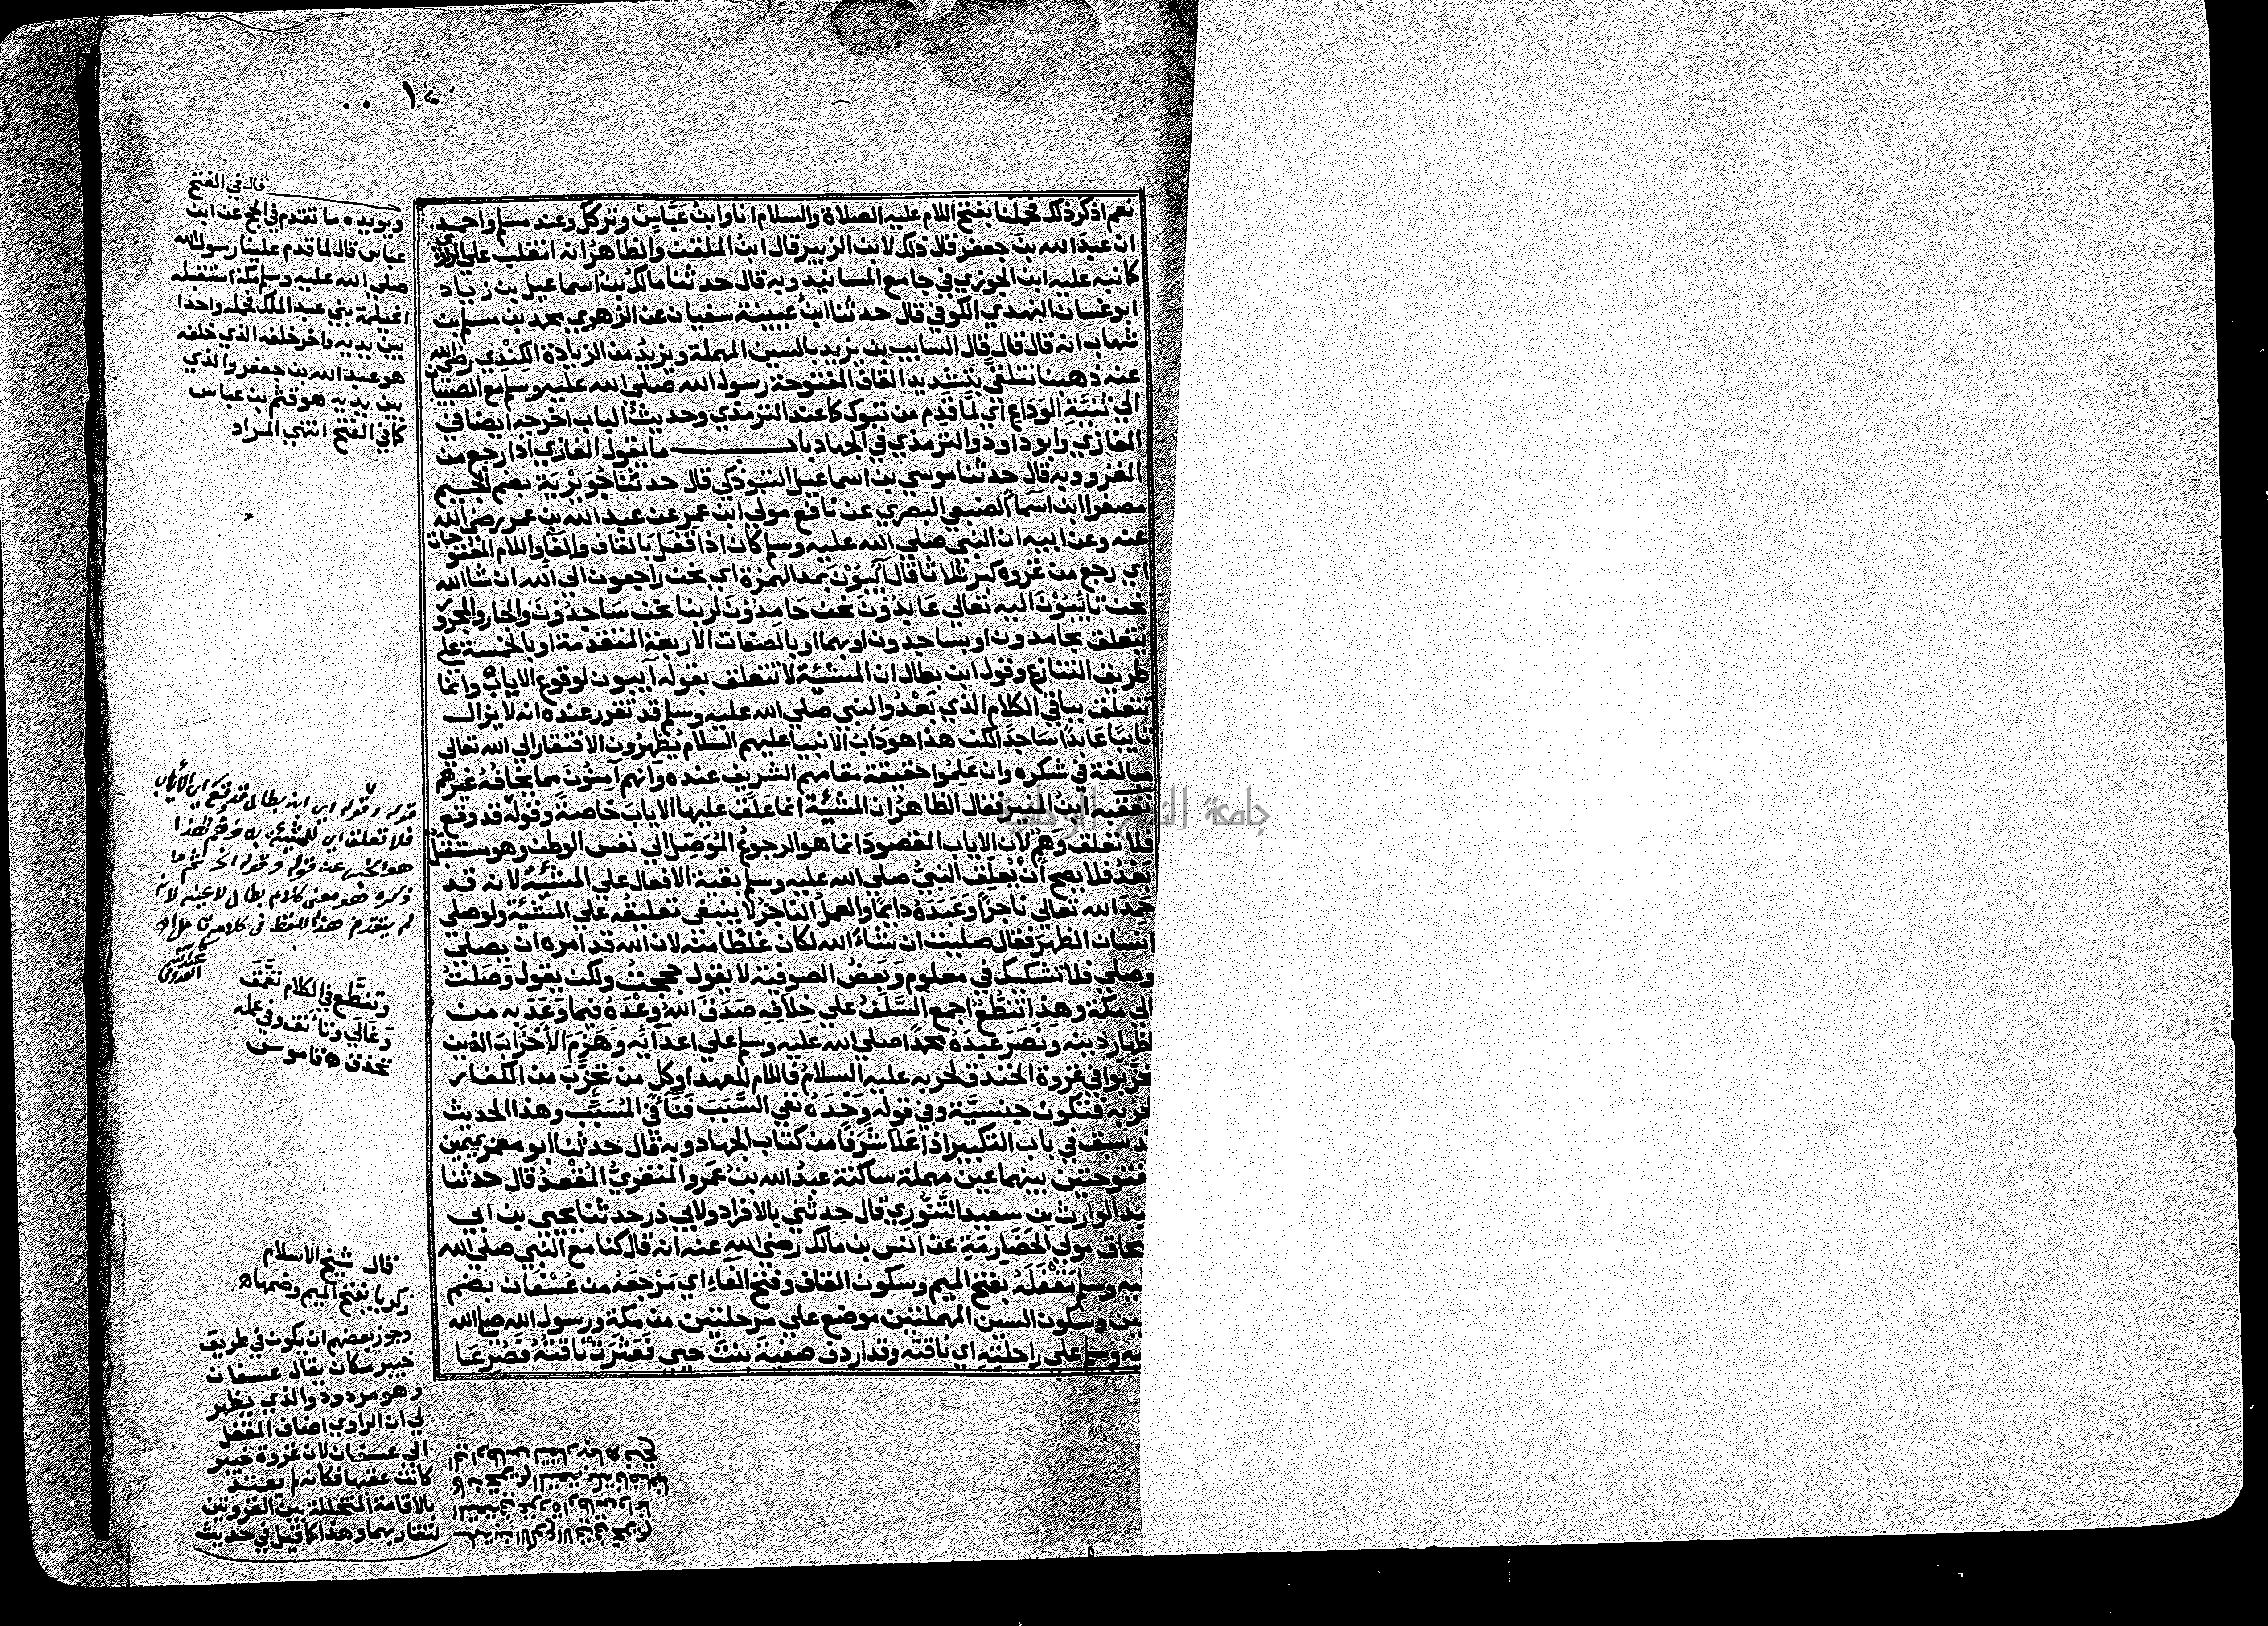 ١٤٠
نعم اذكر ذلك فحملنا بفتح اللام عليه الصلاة والسلام انا وابنُ عَبَّاسٍ وتركك وعند مسلم واحمد
ان عبدَ الله بنَ جعفر قال ذلك لابن الزبير قال ابنُ الملقن والظاهرُ انه انقلب علي الراوي
كما نبه عليه ابن الجوزي في جامع المسانيد وبه قال حدثنا مالكُ بنُ اسماعيل بن زياد
ابو غسان النهدي الكوفي قال حدثنا ابنُ عيينة سفيان عن الزهري محمد بن مسلم بن
شهاب انه قال قال السايب بن يزيد بالسين المهملة ويزيدُ من الزيادة الكِنْدِي رضي الله
عنه ذهبنا نتلقَّى بتشديد القاف المفتوحة رسول الله صلي الله عليه وسلم مع الصبيان
الي ثنيَّةِ الوَدَاعِ اي لَمَّا قَدِم من تبوك كما عند الترمذي وحديثُ الباب اخرجه ايضا في
المغازي وابو داود والترمذي في الجهاد باب ما يقول الغازي اذا رجع من
الغزو وبه قال حدثنا موسي بن اسماعيل التبوذكي قال حدثنا جُوَيْرِيَة بضم الجيم
مصغرا ابن اسماً الضبعي البصري عن نافع مولي ابن عمر عن عبد الله بن عمر رضي الله
عنه وعن ابيه ان النبي صلي الله عليه وسلم كان اذا قَفَلَ بالقاف والفاَ واللام المفتوحات
اي رجع من غزوه كبر ثلاثا قال آئِبُوْنَ بمد الهمزة اي نحن راجعون الي الله ان شا الله
نحن تائِبُوْنَ اليه تعالي عَابِدُوْنَ نحن حَامِدُوْنَ لربنا نحن سَاجِدُوْنَ والجار والمجرور
يتعلق بحامدون او بساجدون او بهما او بالصفات الاربعة المتقدمة او بالخمسة علي
طريق التنازع وقول ابن بطال ان المشيئة لا تتعلق بقوله آيبون لوقوع الاياب وانما
تتعلق بباقي الكلام الذي بَعْدُ والنبي صلي الله عليه وسلم قد تقرر عنده انه لا يزال
تايبًا عَابدًا سَاجدًا لكن هذا هو دَأبُ الانبيا عليهم السلام يُظهِرُون الافتقار الي الله تعالي
مبالغة في شكره وان عَلِمُوا حقيقة مقامهم الشريف عنده وانهم آمِنُونَ مما يخافُهُ غيرُهم
تعقبه ابنُ المنير فقال الظاهرُ ان المشيئة انما عَلَّقَ عليها الايابَ خاصةً وقولُه قد وقع
فلا تعلق وَهَمٌ لان الاياب المقصود انما هو الرجوعُ المُوَصِّل الي نفس الوطن وهو مستقبلٌ
بَعْدُ فلا يصح أنْ يُعلِّق النبيُّ صلي الله عليه وسلم بقيةَ الافعال علي المشيَّة لانه قد
حَمِدَ الله تعالي ناجزًا وعَبَدَهُ دايمًا والعملُ الناجزُ لا ينبغي تعليقُه علي المشيئة ولو صلي
انسان الظهر فقال صليت ان شاءَ الله لكان غلطًا منه لان الله قد امره ان يصلي
وصلي فلا تشكيك في معلوم وبَعضُ الصوفية لا يقول حججتُ ولكن يقول وَصَلتُ
الي مكة وهذا تنطُّعٌ اجمع السَّلَفُ علي خِلافِهِ صَدَقَ اللهُ وَعْدَهُ فيما وَعَدَ به من
اظهار دينه ونَصَرَ عَبدَهُ محمدًا صلي الله عليه وسلم علي اعدآئِه وهَزَمَ الأحْزَابَ الذين
تحزَّبوا في غزوة الخندق لحربه عليه السلامُ فاللام للعهد او كل من تحزَّبَ من الكفار
لحربه فتكون جنسيَّة وفي قوله وَحْدَهُ نفي السَّبَب فَنَآءً في المُسَبِّب وهذا الحديث
قد سبق في باب التكبير اذا عَلَا شَرَفًا من كتاب الجهاد وبه قال حدثنا ابو معمر بميمين
مفتوحتين بينهما عين مهملة ساكنة عبدُ الله بنُ عَمرو المنقريُّ المُقْعَدُ قال حدثنا
عبد الوارث بن سعيد التَّنُّوري قال حدثني بالافراد ولابي ذر حدثنا يحيي بن ابي
اسحاق مولي الحَضَارِمَةِ عن انس بن مالك رضي الله عنه انه قال كنا مع النبي صلي الله
عليه وسلم مَقْفَلَهُ بفتح الميم وسكون القاف وفتح الفاءِ اي مَرْجِعَهُ من عُسْفَان بضم
العين وسكون السين المهملتين موضع علي مرحلتين من مكة ورسول الله صلي الله
عليه وسلم علي راحلتِهِ اي ناقته وقد اردف صفيةَ بنتَ حيي فَعَثَرَتْ ناقتُهُ فَصُرِعَا
قال في الفتح
ويويده ما تقدم في الحج عن ابن
عباس قال لما قدم علينا رسول الله
صلي الله عليه وسلم مكة استقبله
اغيلمة بني عبد الملك فحمل واحدا
بين يديه واخر خلفه الذي خلفه
هو عبد الله بن جعفر والذي
بين يديه هو قثم بن عباس
كما في الفتح انتهي المراد
قوله وقوله اي ابن بطال قد وقع اي الاياب
فلا تعلق اي للمشيئة به وهم هذا
هو الخبر عن قوله وقوله الخ ثم ما
ذكره هو معني كلام بطال لا عينه لانه
لم يتقدم هذا اللفظ في كلامه تامل اه
وتنطَّع في الكلام تعَمَّقَ
وغَالَي وتأنق وفي عمله
تحذق ه قاموس
قال شيخ الاسلام
زكريا بفتح الميم وضمها ه
وجوز بعضهم ان يكون في طريق
خيبر مكان يقال عسفان
وهو مردود والذي يظهر
لي ان الراوي اضاف المقفل
الي عسفان لان غزوة خيبر
كانت عقبها فكانه لم يعتد
بالاقامة المتخللة بين الغزوتين
لتقاربهما وهذا كما قيل في حديث
جامعة النجاح الوطنية